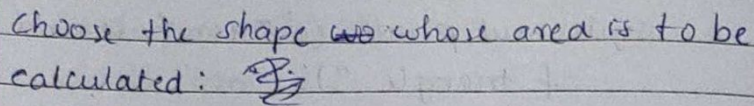 choose the shape whose area is to be
calculated: